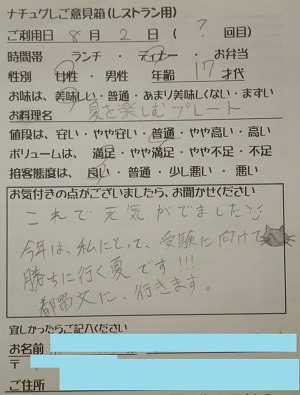 ナチュグしご意見箱(レストラン用)
ご利用日 8月 2日 ( ? 回目)
時間帯 ランチ・ディナー・お弁当
性別 女性・男性 年齢 17才代
お味は、美味しい・普通・あまり美味しくない・まずい
お料理名 夏を楽しむプレート
値段は、安い・やや安い・普通・やや高い・高い
ボリュームは、満足・やや満足・やや不足・不足
接客態度は、良い・普通・少し悪い・悪い
お気付きの点がございましたら、お聞かせください
これで元気がでました
今年は、私にとって、受験に向けて
勝ちに行く夏です!!!
都留文に、行きます。
宜しかったらご記入ください
お名前
〒
ご住所